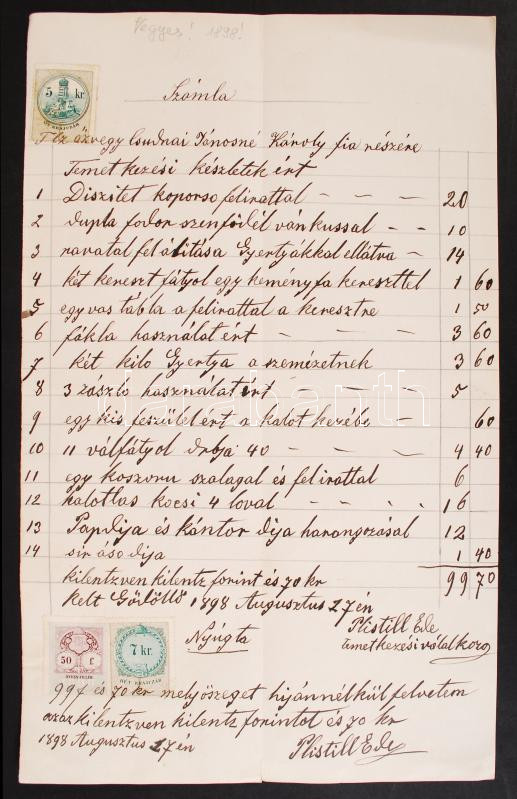 Vegyes! 1898!
Számla
5 kr.
Az özvegy Csudnai Jánosné Károly fia részére
Temetkezési készletek ért
1 Diszitet koporso felirattal — — — 20
2 dupla fodor szemfödél vánkussal - - 10
3 ravatal felálitása Gyertyákkal ellátva — 14
4 két kereszt fátyol egy keményfa kereszttel 1 60
5 egy vas tábla a felirattal a keresztre 1 50
6 fákla használat ért — — — 3 60
7 két kilo Gyertya a szemézetnek 3 60
8 3 zászló használat ért — — 5
9 egy kis feszület ért a halot kezébe — 60
10 11 válfátyol drbja 40 — — — 4 40
11 egy koszoru szalagal és felirattal 6
12 halottas kocsi 4 loval — - - - 16
13 Papdija és kántor dija harangozásal 12
14 sir ásó dija 1 40
kilentzven kilentz forint és 70 kr 99 70
Kelt Gödöllő 1898 Augusztus 27én
Plistill Ede
temetkezési válalkozo
Nyúgta
50 f
7 kr.
HÉT KRAJCZÁR
99 f és 70 kr mely öszeget hijánnélkül felvettem
azaz kilentzven kilentz forintot és 70 kr
1898 Augusztus 27én
Plistill Ede
darabanth